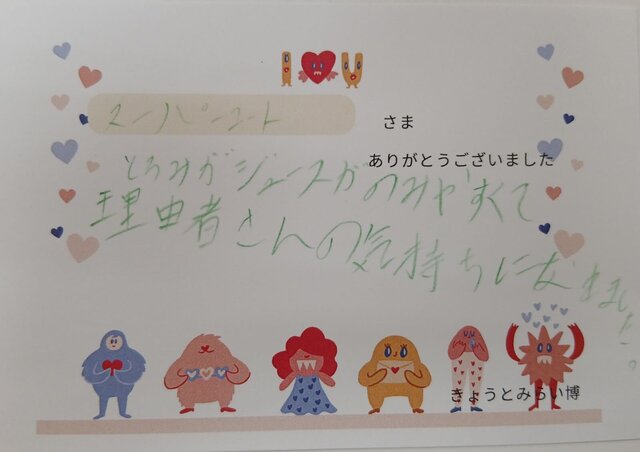 I U
スーパーコート
さま
ありがとうございました
とろみがジュースがのみやすくて
理由者さんの気持ちになれました。
きょうとみらい博